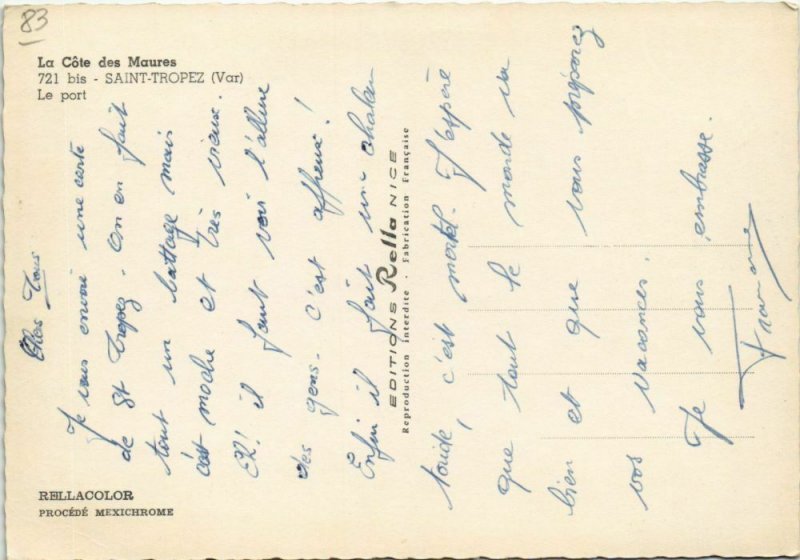 83
La Côte des Maures
721 bis - SAINT-TROPEZ (Var)
Le port
Chers Tous
Je vous envoie une carte
de St Tropez. On en fait
tout un battage mais
c'est moche et très vieux.
Et! il faut voir l'allure
des gens. c'est affreux!
Enfin il fait une chaleur
torride, c'est mortel. J'espère
que tout le monde va
bien et que vous préparez
vos vacances.
Je vous embrasse.
EDITIONS Rella NICE
Reproduction interdite - Fabrication Française
RELLACOLOR
PROCÉDÉ MEXICHROME